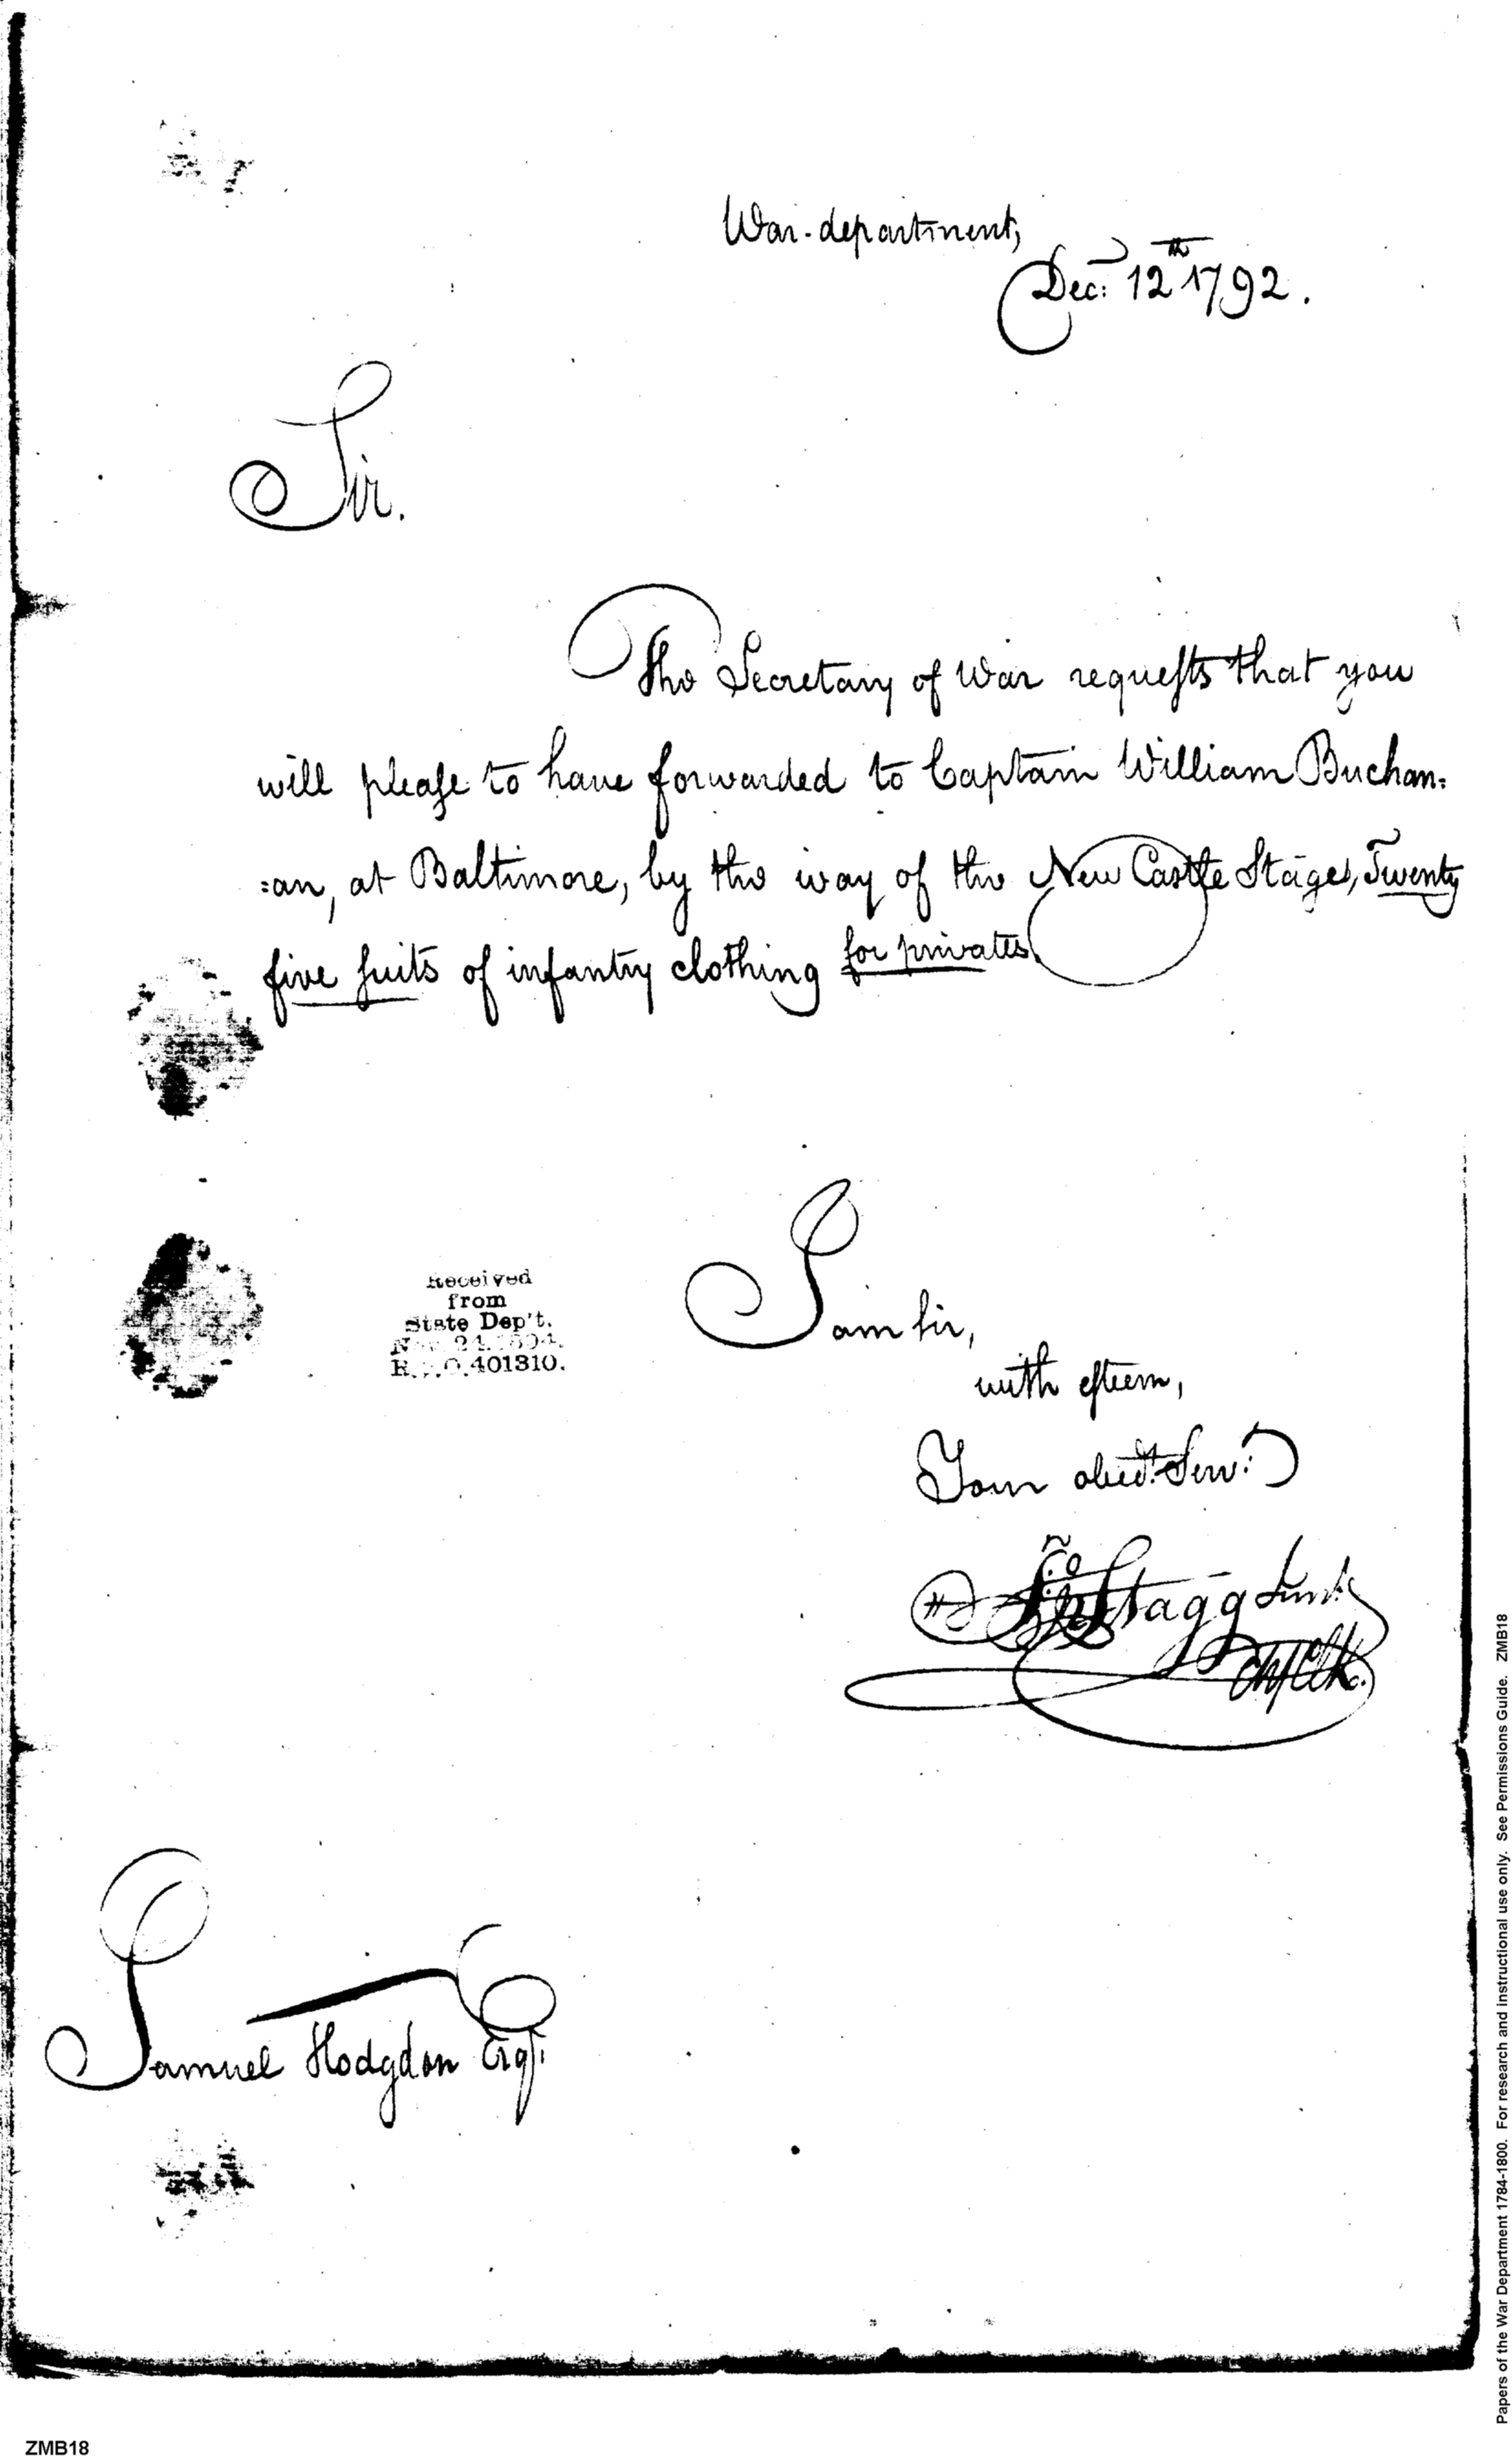 War-department,
Dec: 12th 1792.
Sir.
The Secretary of War requests that you
will please to have forwarded to Captain William Buchan:
:an, at Baltimore, by the way of the New Castle Stages, Twenty
five suits of infantry clothing for privates.
I am sir,
with esteem,
Your obedt. Serv:
Stagg Junr.
Chf Clk.
Received
from
State Dep't.
401310.
Samuel Hodgdon Esqr.
ZMB18
Papers of the War Department 1784-1800. For research and instructional use only. See Permissions Guide. ZMB18